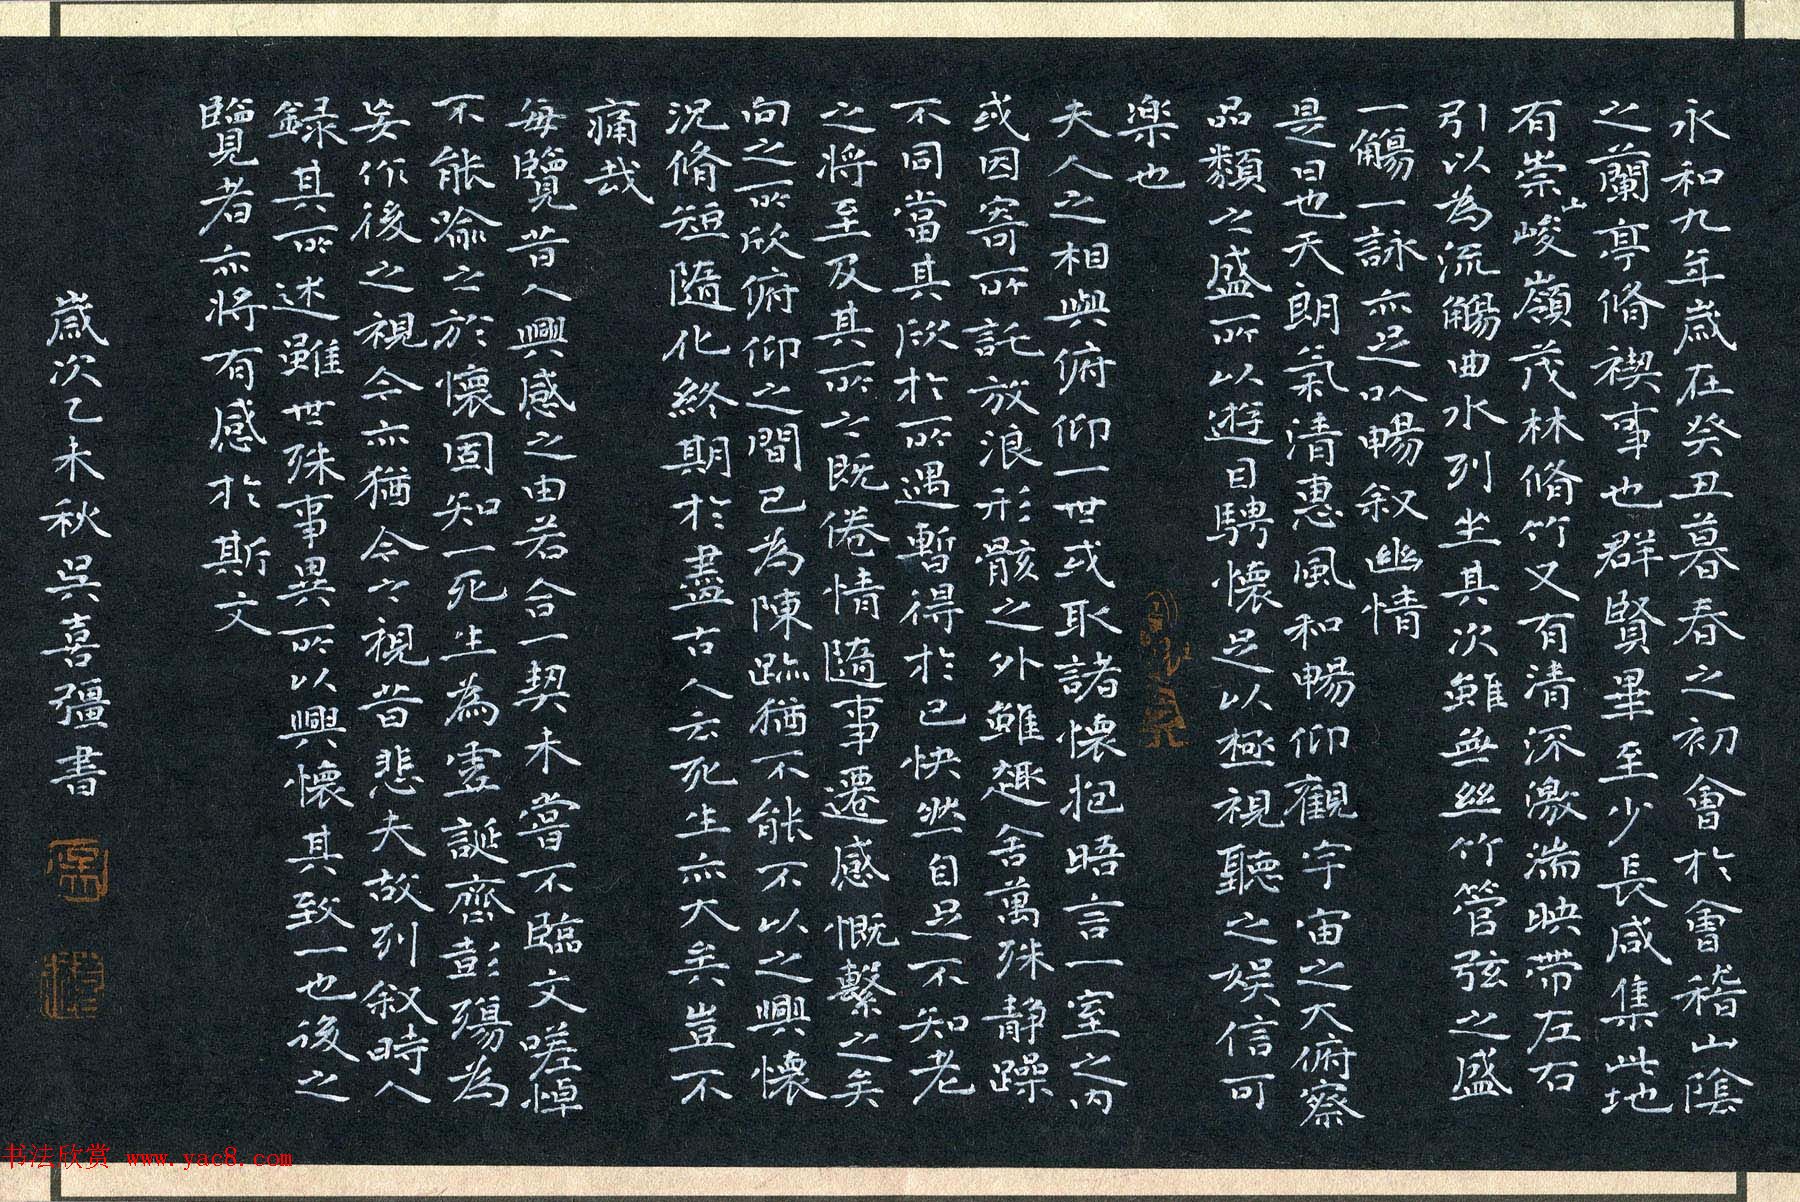 永和九年歲在癸丑暮春之初會於會稽山陰
之蘭亭脩禊事也群賢畢至少長咸集此地
有崇山峻嶺茂林脩竹又有清深激湍映帶左右
引以為流觴曲水列坐其次雖無絲竹管弦之盛
一觴一詠亦足以暢叙幽情
是日也天朗氣清惠風和暢仰觀宇宙之大俯察
品類之盛所以遊目騁懷足以極視聽之娛信可
楽也
夫人之相與俯仰一世或取諸懷抱晤言一室之內
或因寄所託放浪形骸之外雖趣舍萬殊静躁
不同當其欣於所遇暫得於己快然自足不知老
之将至及其所之既倦情隨事遷感慨繫之矣
向之所欣俯仰之間已為陳迹猶不能不以之興懷
況脩短隨化終期於盡古人云死生亦大矣豈不
痛哉
每覽昔人興感之由若合一契未嘗不臨文嗟悼
不能喻之於懷固知一死生為虛誕齊彭殤為
妄作後之視今亦猶今之視昔悲夫故列叙時人
録其所述雖世殊事異所以興懷其致一也後之
覽者亦将有感於斯文
歲次乙未秋吳喜彊書
书法欣赏 www.yac8.com